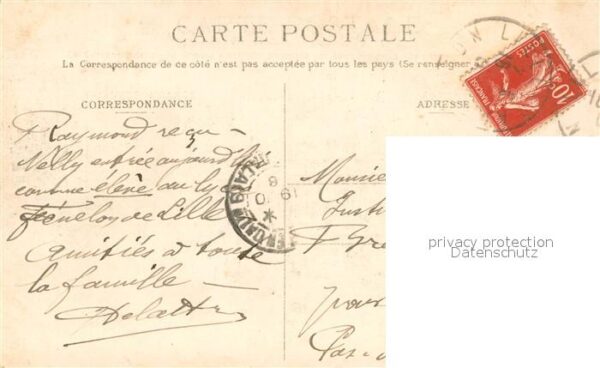 CARTE POSTALE
La Correspondance de ce côté n'est pas acceptée par tous les pays (Se renseigner
CORRESPONDANCE
ADRESSE
POSTES
10c
Raymond reçu —
Nelly entrée aujourd'hui
comme élève au lycée
Fénelon de Lille
Amitiés à toute
la famille —
Delattre
Monsie
Insti
Pas-
privacy protection
Datenschutz